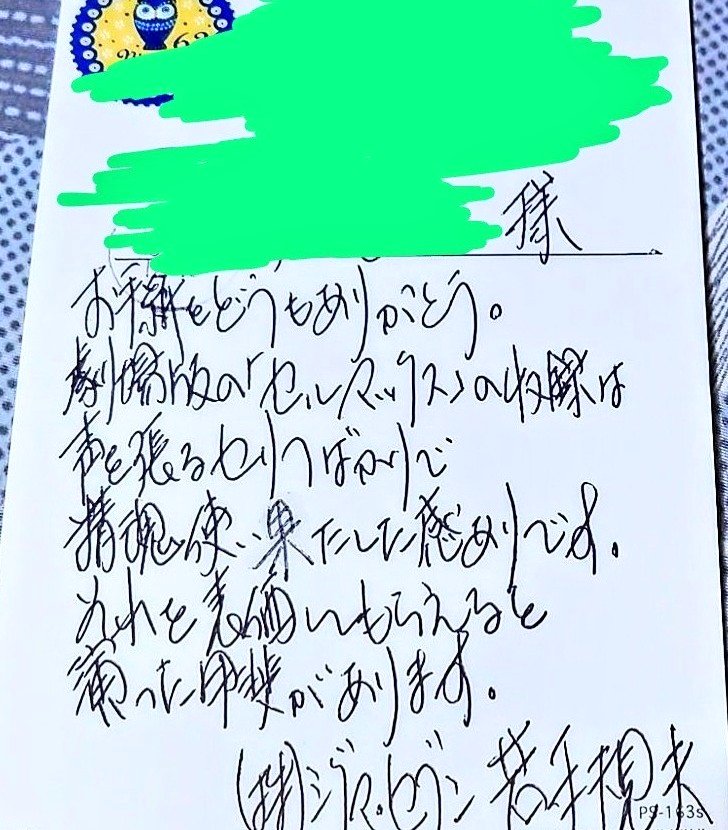 様
お手紙をどうもありがとう。
劇場版の「セルマックス」の収録は
声を張るセリフばかりで
精魂使い果たした感ありです。
それを評価してもらえると
演った甲斐があります。
(株)シグマ・セブン 若本規夫
PS-163s